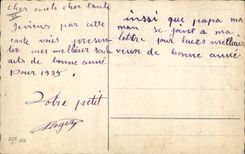 cher oncle cher tante
Je viens par cette
carte vous présen
les mes meilleurs souh
aits de bonne année
pour 1935
Votre petit
Roger
inssi que papa ma
man se joint a ma
lettre pour leurs meilleurs
veuse de bonne année